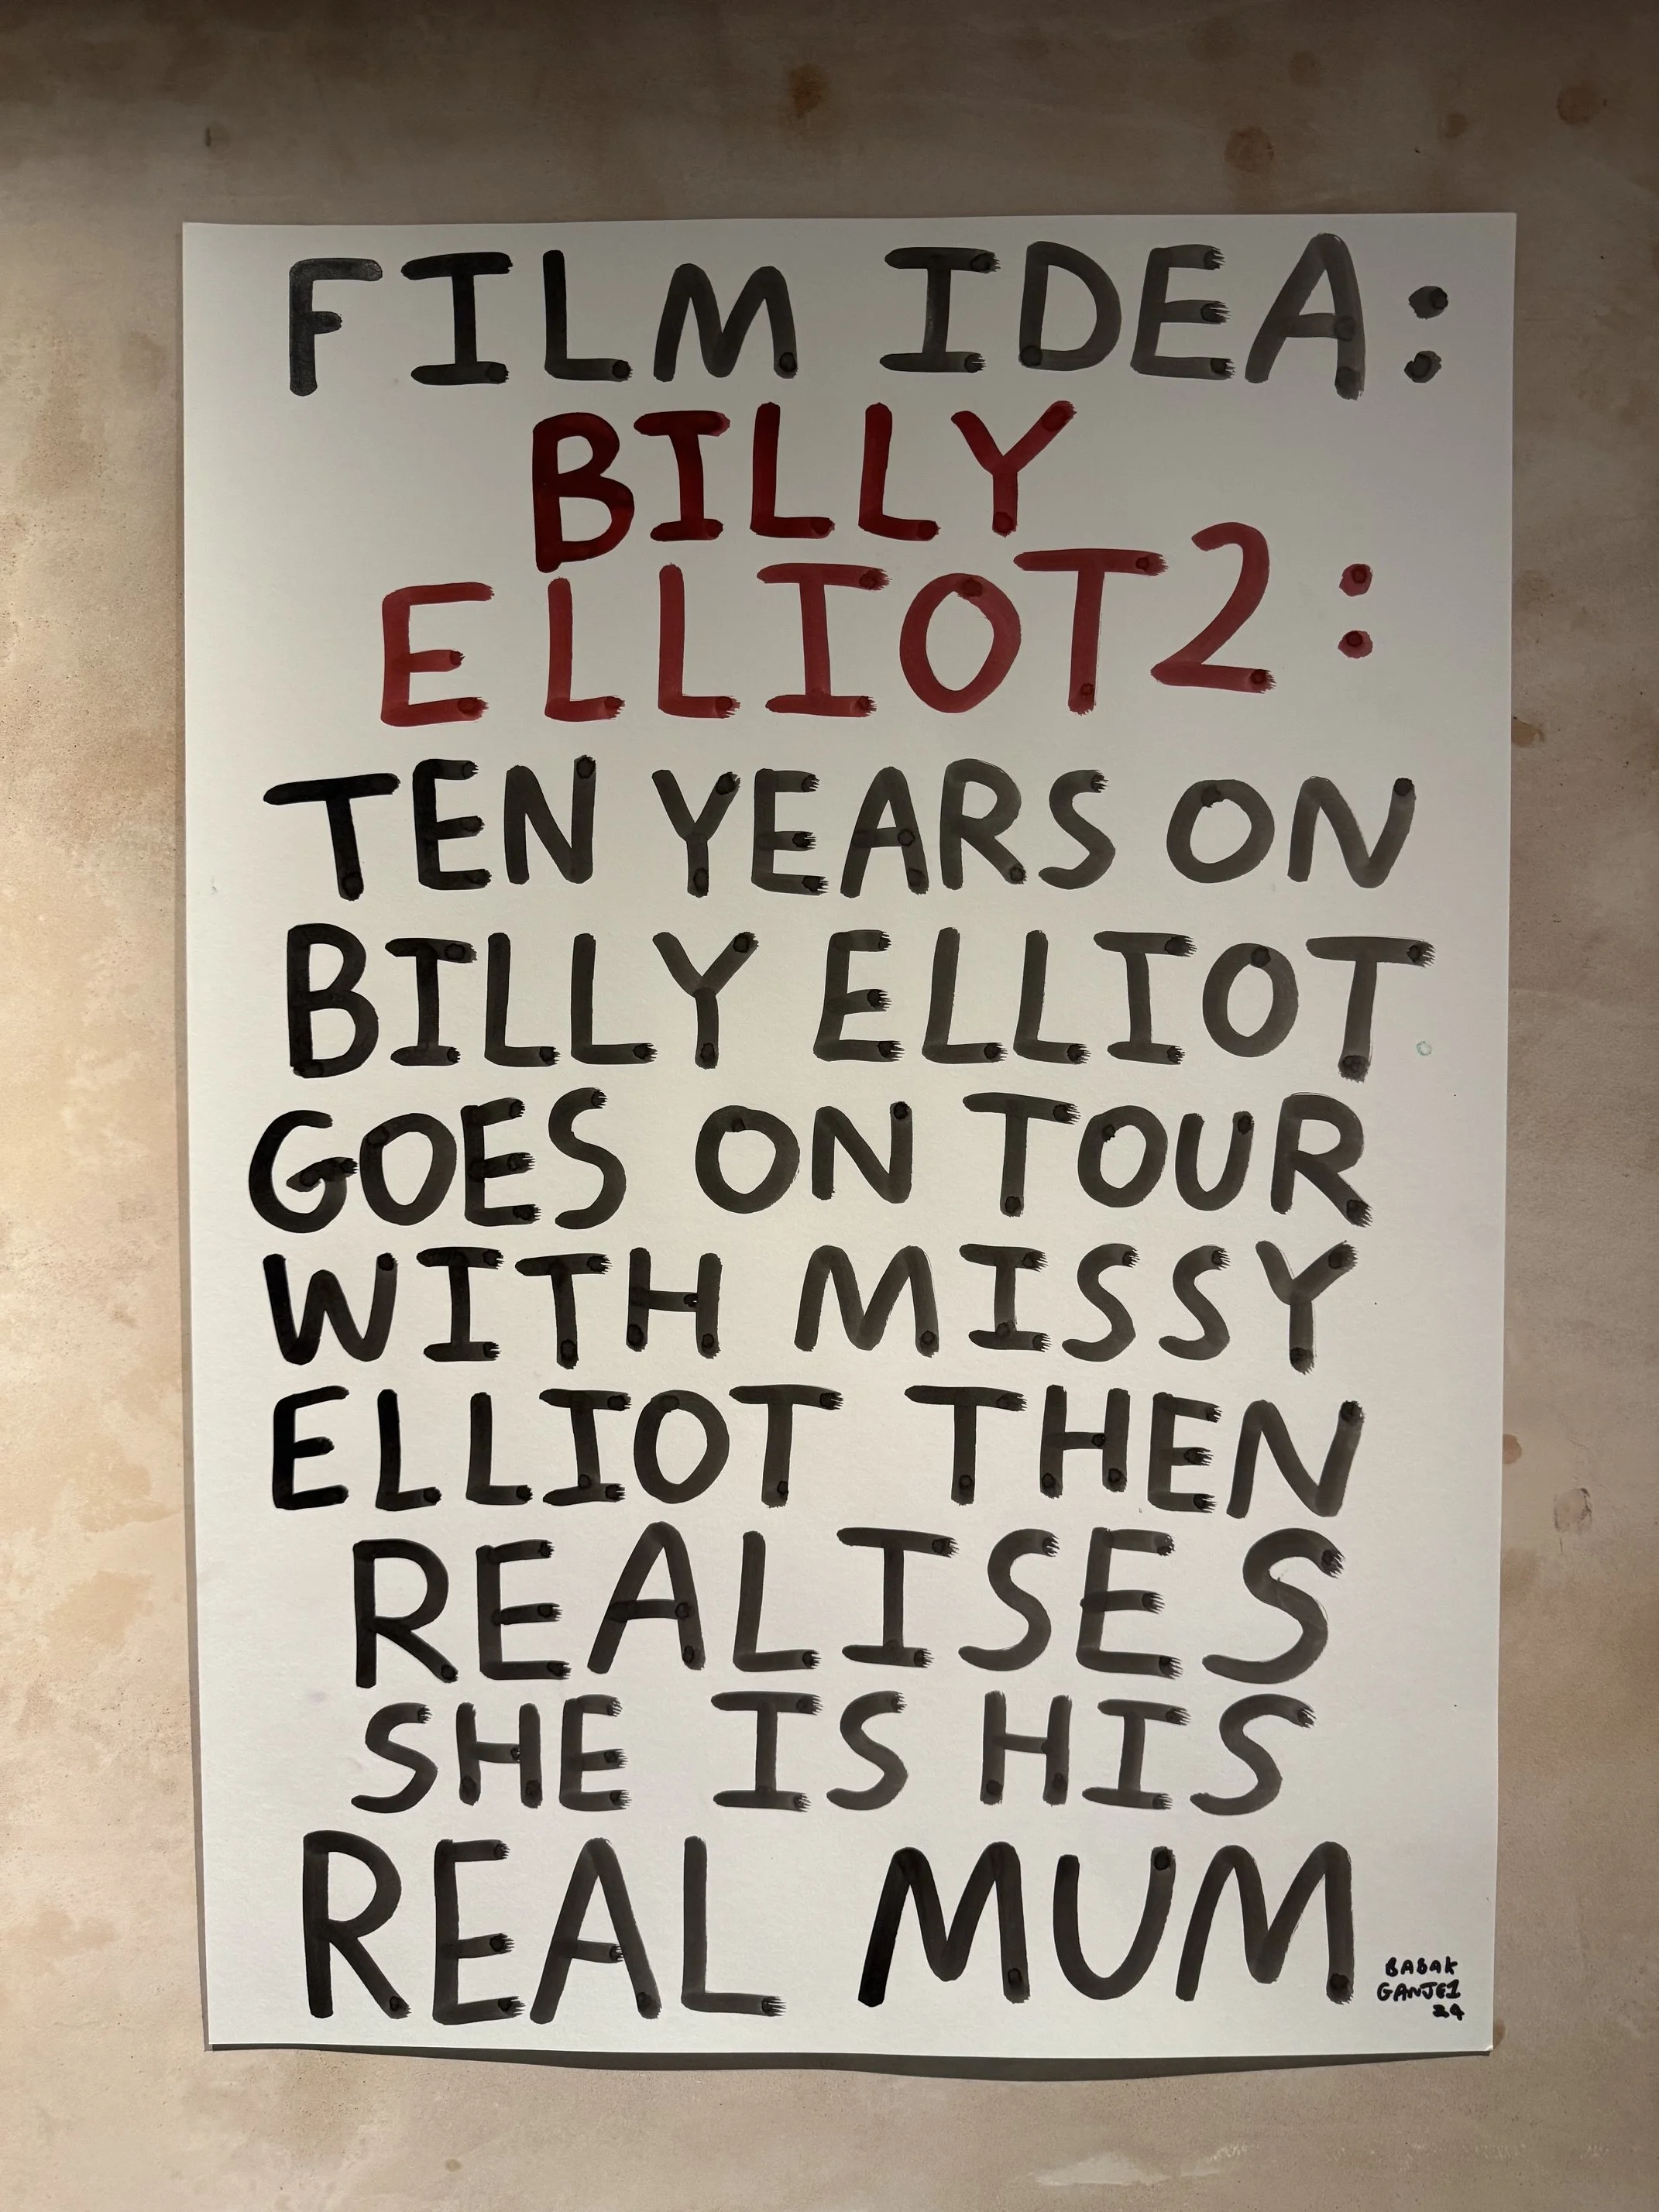 FILM IDEA:
BILLY
ELLIOT2:
TEN YEARS ON
BILLY ELLIOT
GOES ON TOUR
WITH MISSY
ELLIOT THEN
REALISES
SHE IS HIS
REAL MUM
BABAK
GANJEI
24